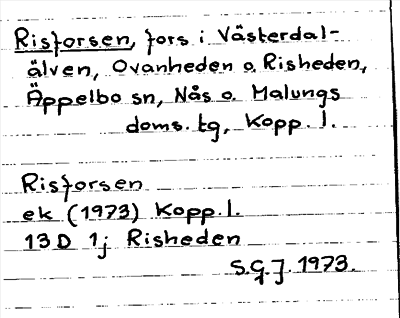 Risforsen, fors i Västerdal-
älven, Ovanheden o. Risheden,
Äppelbo sn, Nås o. Malungs
doms. tg, Kopp. l.
Risforsen
ek (1973) Kopp. l.
13D 1j Risheden
S.G.J. 1973.